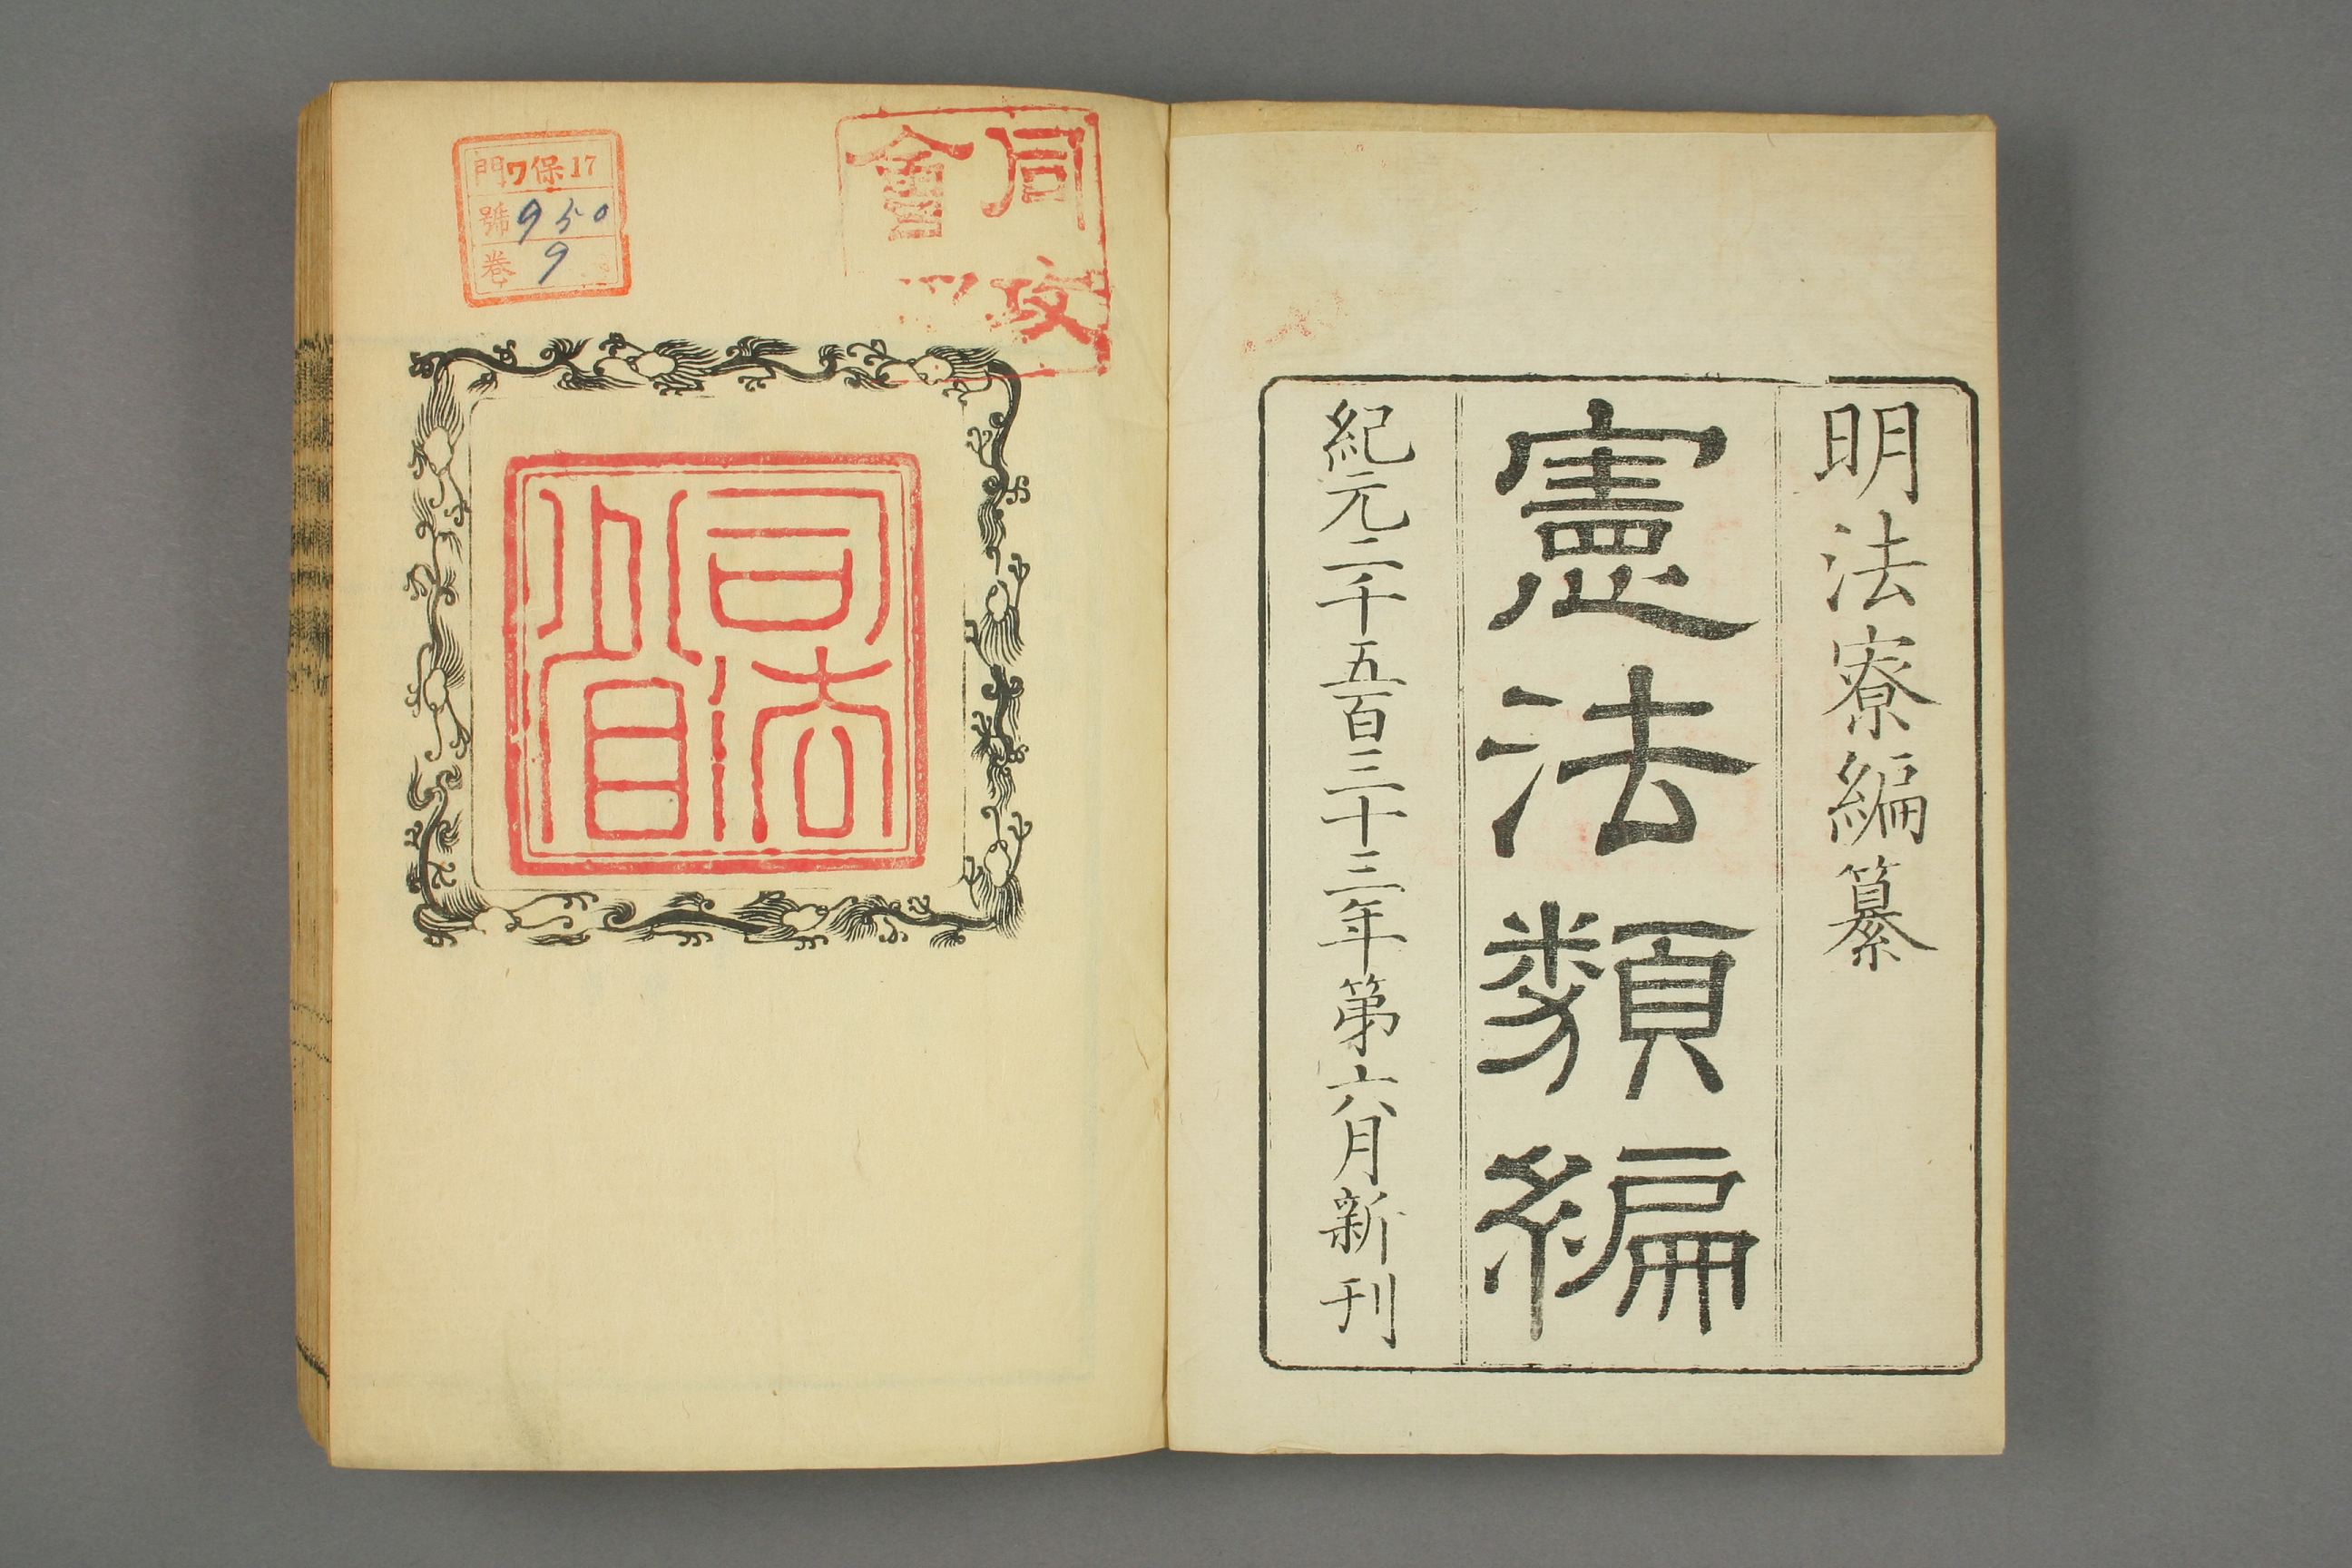 明法寮編纂
憲法類編
紀元二千五百三十三年第六月新刊
同攻
會
司法
省
門ワ保17
號950
卷9